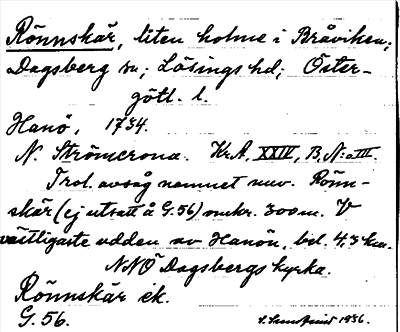 Rönnskär, liten holme i Bråviken;
Dagsberg sn; Lösings hd; Öster-
götl. l.
Hanö, 1734.
N. Strömcrona. Kr.A, XXIV, B, N:o III.
Trol. avsåg namnet nuv. Rönn-
skär (ej utsatt å G. 56) omkr. 300 m. V
västligaste udden av Hanön, bel. 4,3 km.
NNÖ Dagsbergs kyrka.
Rönnskär ek.
G. 56.
1936.